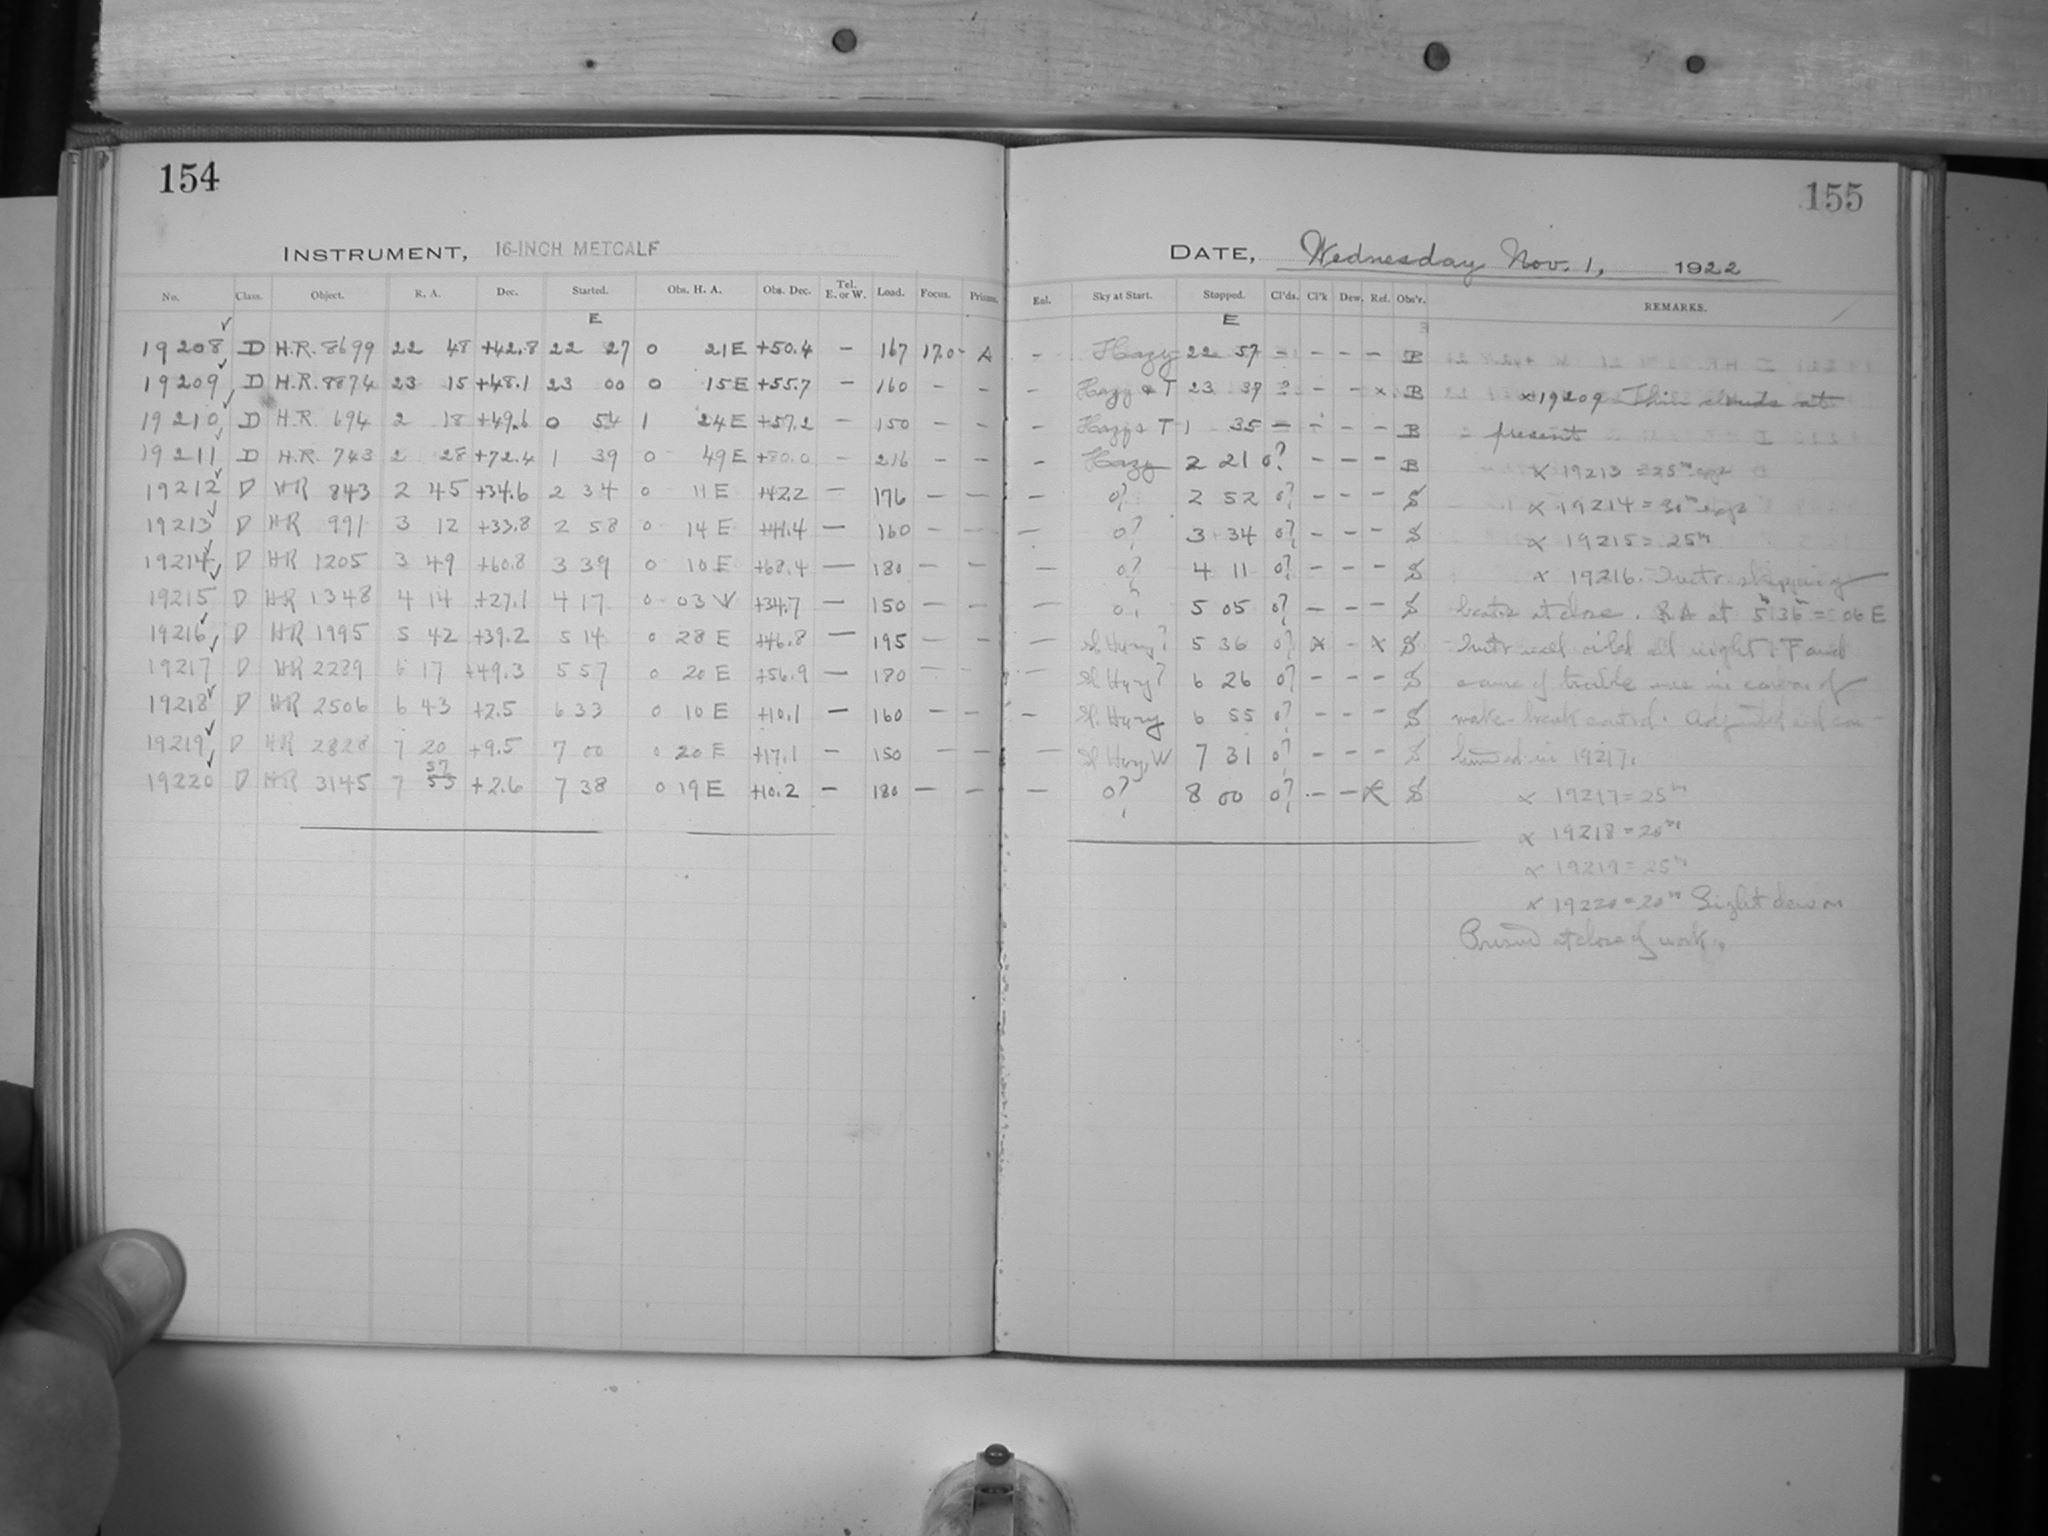 154
155
INSTRUMENT, 16-INCH METCALF
DATE, Wednesday Nov. 1, 1922
No. Class. Object. R. A. Dec. Started. Obs. H. A. Obs. Dec. Tel. E. or W. Load. Focus. Prisms. Enl. Sky at Start. Stopped. Cl'ds. Cl'k Dew. Ref. Obs'r. REMARKS.
E E
19208 D H.R. 8699 22 48 +42.8 22 27 0 21E +50.4 - 167 170- A - Hazy 22 57 - - - - B
19209 D H.R. 8874 23 15 +48.1 23 00 0 15E +55.7 - 160 - - - Hazy & T 23 39 ? - - x B x19209 Thin clouds at
19210 D H.R. 694 2 18 +49.6 0 54 1 24E +57.2 - 150 - - - Hazy & T 1 35 - - - - B present
19211 D H.R. 743 2 28 +72.4 1 39 0 49E +80.0 - 216 - - - Hazy 2 21 0? - - - B x 19213 = 25m exp
19212 D HR 843 2 45 +34.6 2 34 0 11E +42.2 - 176 - - - 0? 2 52 0? - - - S x 19214 = 30m exp
19213 D HR 991 3 12 +33.8 2 58 0 14E +41.4 - 160 - - - 0? 3 34 0? - - - S x 19215 = 25m
19214 D HR 1205 3 49 +60.8 3 39 0 10E +68.4 - 180 - - - 0? 4 11 0? - - - S x 19216. Instr. skipping
19215 D HR 1348 4 14 +27.1 4 17 0 03 W +34.7 - 150 - - - 0? 5 05 0? - - - S beats at close. RA at 5h 36m = 06 E
19216 D HR 1995 5 42 +39.2 5 14 0 28 E +46.8 - 195 - - - Sl. Hazy? 5 36 0? x - x S Instr. all night
19217 D HR 2289 6 17 +49.3 5 57 0 20E +56.9 - 180 - - - Sl Hazy? 6 26 0? - - - S cause of trouble
19218 D HR 2506 6 43 +2.5 6 33 0 10 E +10.1 - 160 - - - Sl. Hazy 6 55 0? - - - S make-break control. Adjusted and con-
19219 D HR 2828 7 20 +9.5 7 00 0 20 E +17.1 - 150 - - - Sl Hazy W 7 31 0? - - - S tinued in 19217.
57
19220 D HR 3145 7 53 +2.6 7 38 0 19E +10.2 - 180 - - - 0? 8 00 0? - - x S x 19217 = 25m
x 19218 = 20m
x 19219 = 25m
x 19220 = 20m Slight dew on
Prism at close of work.